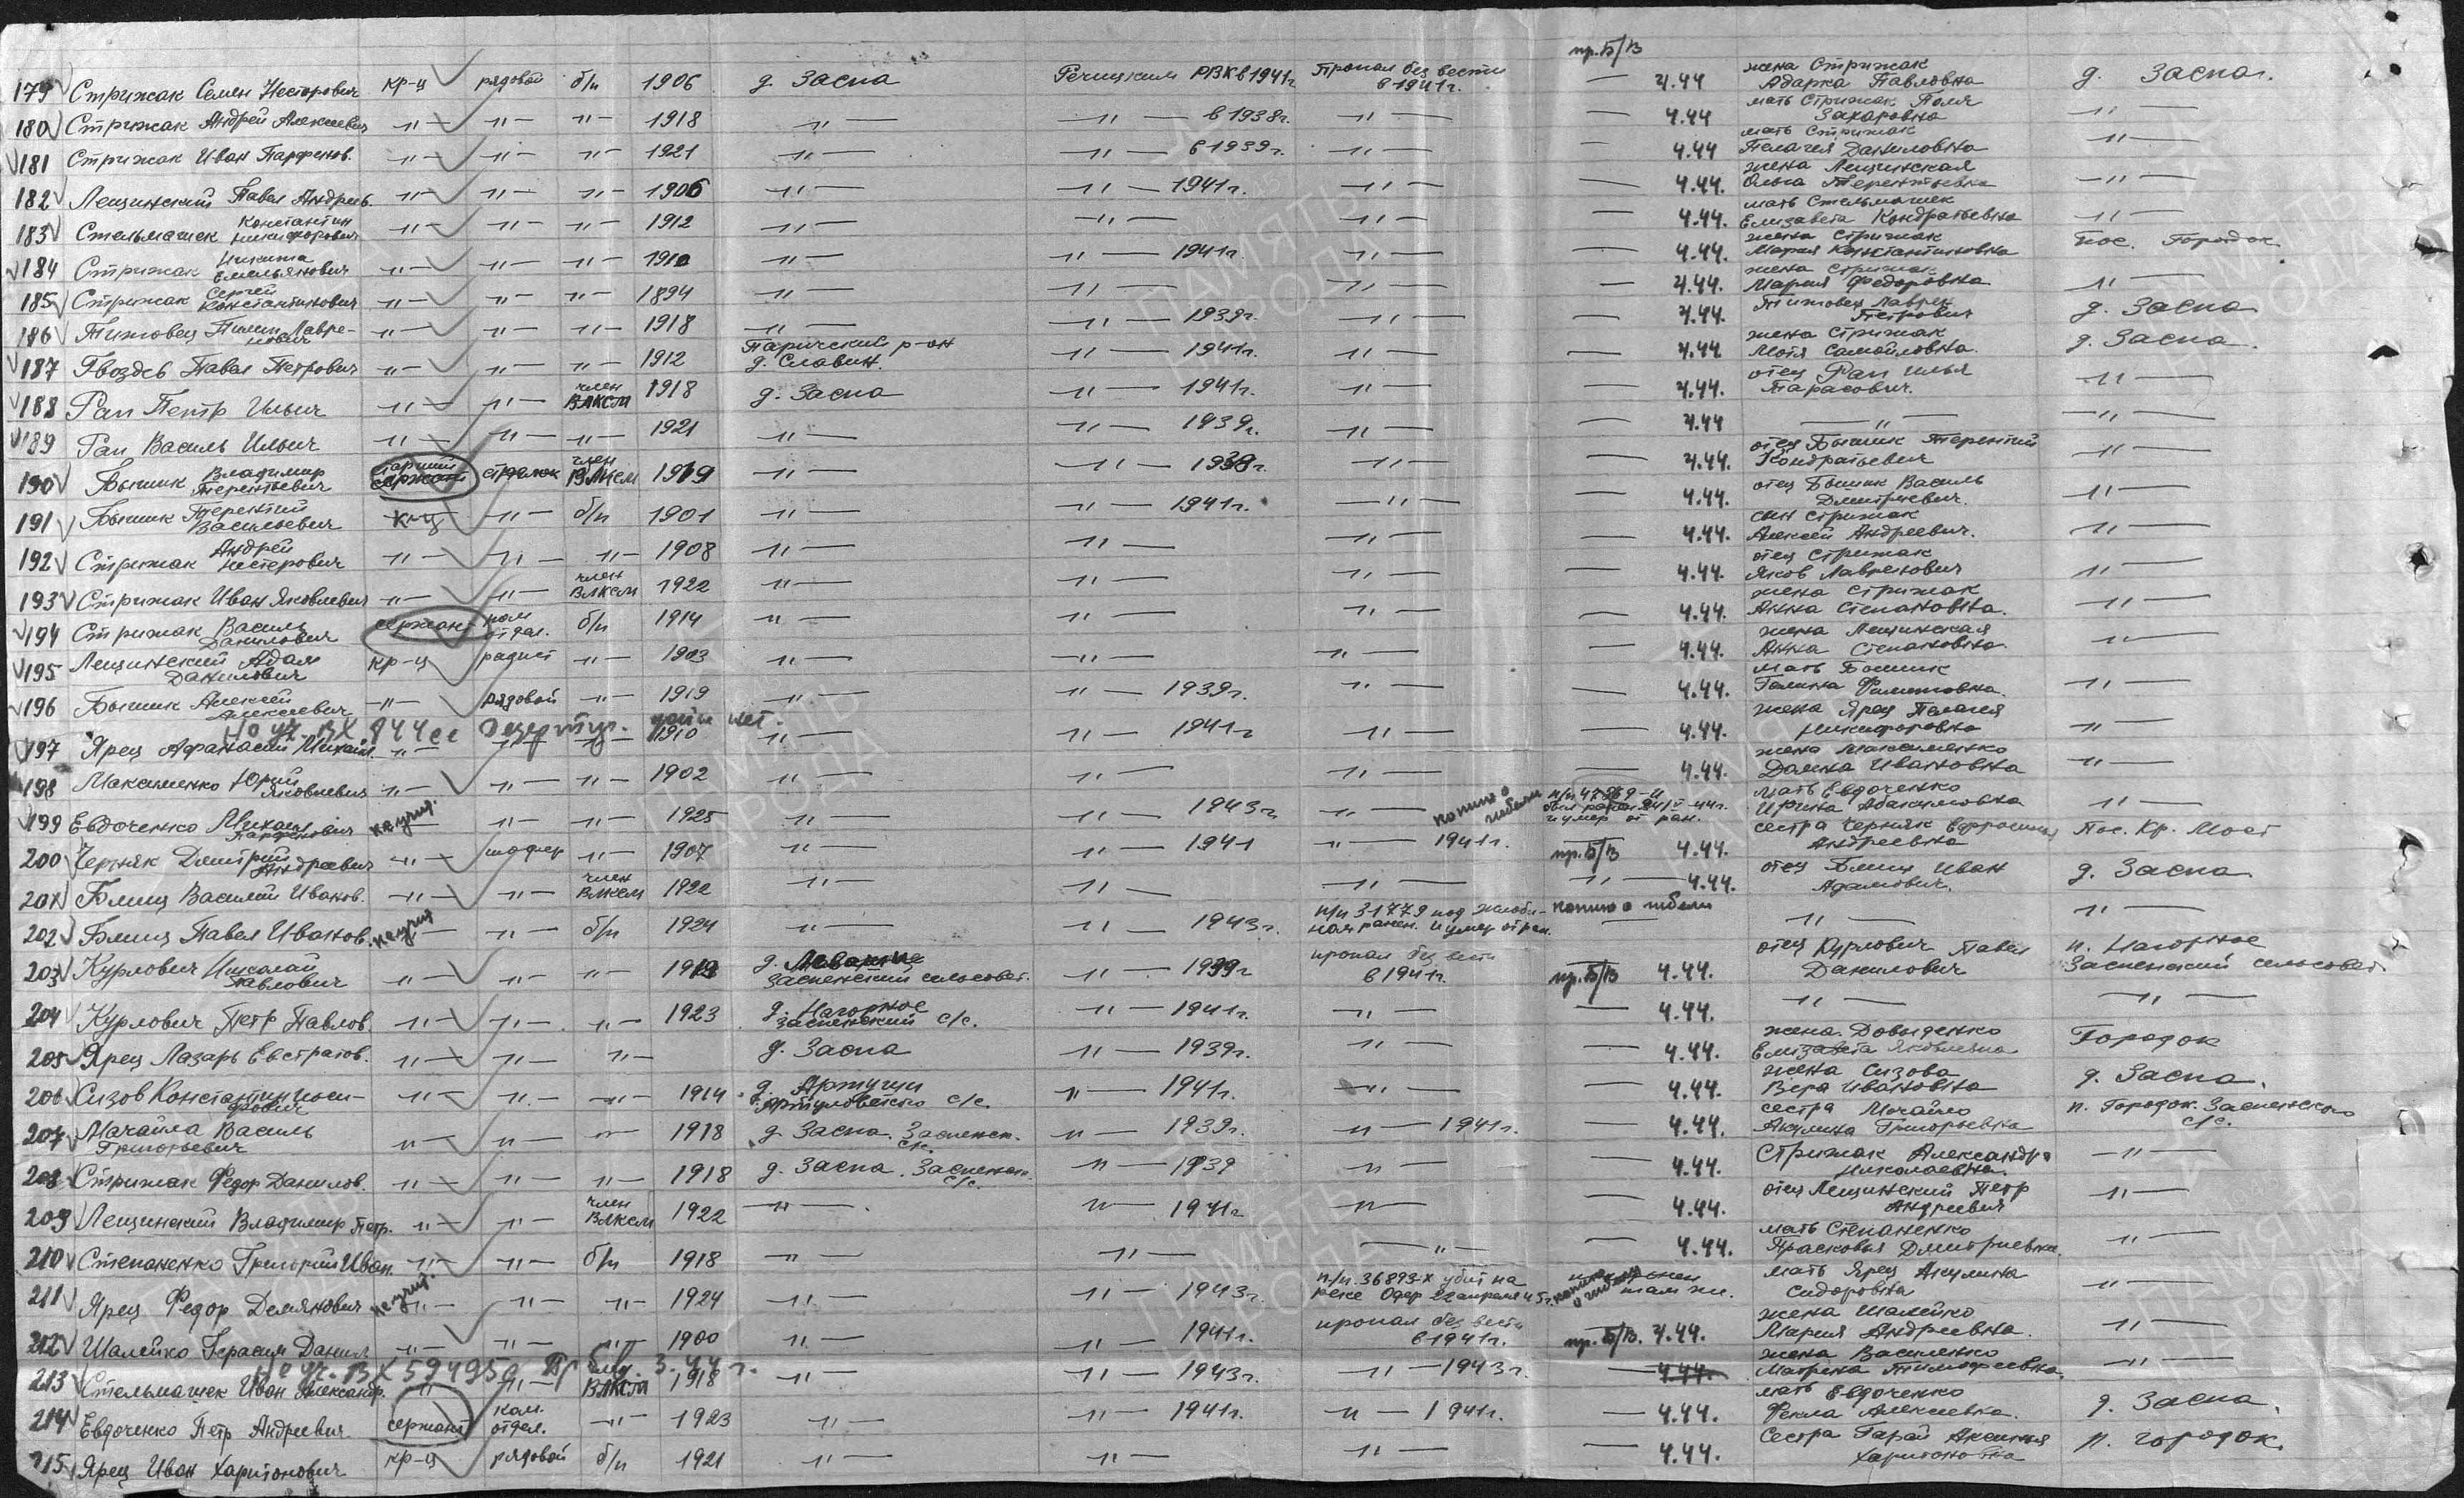 179 Стрижак Семен Несторович кр-ц рядовой б/п 1906 д. Заспа Речицким РВК в 1941г. Пропал без вести в 1941г. пр. Б/В — 4.44 жена Стрижак Адарка Павловна д. Заспа.
180 Стрижак Андрей Алексеевич —"— —"— —"— 1918 —"— —"— в 1938г. —"— — 4.44 мать Стрижак Поля Захаровна —"—
181 Стрижак Иван Парфенов. —"— —"— —"— 1921 —"— —"— в 1939г. —"— — 4.44 мать Стрижак Пелагея Даниловна —"—
182 Лещинский Павел Андреев. —"— —"— —"— 1906 —"— —"— 1941г. —"— — 4.44. жена Лещинская Ольга Терентьевна —"—
183 Стельмашек Константин Никифорович —"— —"— —"— 1912 —"— —"— —"— — 4.44. мать Стельмашек Елизавета Кондратьевна —"—
184 Стрижак Никита Емельянович —"— —"— —"— 1910 —"— —"— 1941г. —"— — 4.44. жена Стрижак Мария Константиновна пос. Городок
185 Стрижак Сергей Константинович —"— —"— —"— 1894 —"— —"— —"— — 4.44. жена Стрижак Мария Федоровна —"—
186 Титовец Лавренович —"— —"— —"— 1918 —"— —"— 1939г. —"— — 4.44. Титовец Лаврен Петрович д. Заспа
187 Гвоздев Павел Петрович —"— —"— —"— 1912 Паричский р-он д. Славин. —"— 1941г. —"— — 4.44 жена Стрижак Мотя Самойловна. д. Заспа.
188 Рап Петр Ильич —"— —"— член ВЛКСМ 1918 д. Заспа —"— 1941г. —"— — 4.44. отец Рап Илья Тарасович. —"—
189 Рап Василь Ильич —"— —"— —"— 1921 —"— —"— 1939г. —"— — 4.44 —"— —"—
190 Бышик Владимир Терентьевич старший сержант стрелок член ВЛКСМ 1919 —"— —"— 1938г. —"— — 4.44. отец Бышик Терентий Кондратьевич —"—
191 Бышик Терентий Васильевич к-ц —"— б/п 1901 —"— —"— 1941г. —"— — 4.44. отец Бышик Василь Дмитриевич. —"—
192 Стрижак Андрей Нестерович —"— —"— —"— 1908 —"— —"— —"— — 4.44. сын Стрижак Алексей Андреевич. —"—
193 Стрижак Иван Яковлевич —"— —"— член ВЛКСМ 1922 —"— —"— —"— — 4.44. отец Стрижак Яков Лавренович —"—
194 Стрижак Василь Данилович сержант ком. отдел. б/п 1914 —"— —"— —"— — 4.44. жена Стрижак Анна Степановна. —"—
195 Лещинский Адам Данилович кр-ц радист —"— 1903 —"— —"— —"— — 4.44. жена Лещинская Анна Степановна —"—
196 Бышик Алексей Алексеевич —"— рядовой —"— 1919 —"— —"— 1939г. —"— — 4.44. мать Бышик Галина Филиповна. —"—
На уч. ВХ 844сс
197 Ярец Афанасий Михайл. —"— —"— —"— 1910 —"— —"— 1941г —"— — 4.44. жена Ярец Пелагея Никифоровна —"—
198 Максименко Юрий Яковлевич —"— —"— —"— 1902 —"— —"— —"— — 4.44. жена Максименко Домна Ивановна —"—
199 Евдоченко Михаил Парфенович не учит. —"— —"— 1925 —"— —"— 1943г —"— копию о гибели умер от ран. мать Евдоченко Ирина Абакумовна —"—
200 Черняк Дмитрий Андреевич —"— шофер —"— 1907 —"— —"— 1941 —"— 1941г. пр. Б/В 4.44. сестра Черняк Евфросиния Андреевна Пос. Кр. Мост
201 Блищ Василий Иванов. —"— —"— член ВЛКСМ 1922 —"— —"— —"— —"— 4.44. отец Блищ Иван Адамович. д. Заспа
202 Блищ Павел Иванов. не учит —"— б/п 1924 —"— —"— 1943г. п/п 31779 под Жлобином ранен. и умер от ран. копию о гибели — —"— —"—
203 Курлович Николай Павлович —"— —"— —"— 1918 д. Заспенский сельсовет. —"— 1939г пропал без вести в 1941г. пр. Б/В 4.44. отец Курлович Павел Данилович п. Нагорное Заспенский сельсовет
204 Курлович Петр Павлов. —"— —"— —"— 1923 д. Нагорное Заспенский с/с. —"— 1941г. —"— — 4.44. —"— —"—
205 Ярец Лазарь Евстратов. —"— —"— —"— д. Заспа —"— 1939г. —"— — 4.44. жена. Довыденко Елизавета Яковлевна Городок
206 Сизов Константин Иосифович —"— —"— —"— 1914 д. Артуки с/с. —"— 1941г. —"— — 4.44. жена Сизова Вера Ивановна д. Заспа.
207 Мачайла Василь Григорьевич —"— —"— —"— 1918 д. Заспа. Заспенск. с/с. —"— 1939г. —"— 1941г. — 4.44. сестра Мачайло Акулина Григорьевна п. Городок. Заспенского с/с.
208 Стрижак Федор Данилов. —"— —"— —"— 1918 д. Заспа. Заспенск. с/с. —"— 1939 —"— — 4.44. Стрижак Александра Николаевна. —"—
209 Лещинский Владимир Петр. —"— —"— член ВЛКСМ 1922 —"— —"— 1941г —"— — 4.44. отец Лещинский Петр Андреевич —"—
210 Степаненко Григорий Иван. —"— —"— б/п 1918 —"— —"— —"— — 4.44. мать Степаненко Прасковья Дмитриевна. —"—
211 Ярец Федор Демянович не учит. —"— —"— —"— 1924 —"— —"— 1943г. п/п. 36893-х убит на реке Одер 22 апреля 45г. копию о гибели там же. мать Ярец Акулина Сидоровна —"—
212 Шалейко Герасим Данил. —"— —"— —"— 1900 —"— —"— 1941г. пропал без вести в 1941г. пр. Б/В. 4.44. жена Шалейко Мария Андреевна. —"—
На уч. ВХ 59495с Пр. б/в. 3.44 г.
213 Стельмашек Иван Александр. —"— —"— член ВЛКСМ 1918 —"— —"— 1943г. —"— 1943г. — 4.44. жена Василенко Матрена Тимофеевна. —"—
214 Евдоченко Петр Андреевич сержант ком. отдел. —"— 1923 —"— —"— 1941г. —"— 1941г. — 4.44. мать Евдоченко Фекла Алексеевна. д. Заспа.
215 Ярец Иван Харитонович кр-ц рядовой б/п 1921 —"— —"— —"— — 4.44. Сестра Гарай Аксинья Харитоновна п. городок.